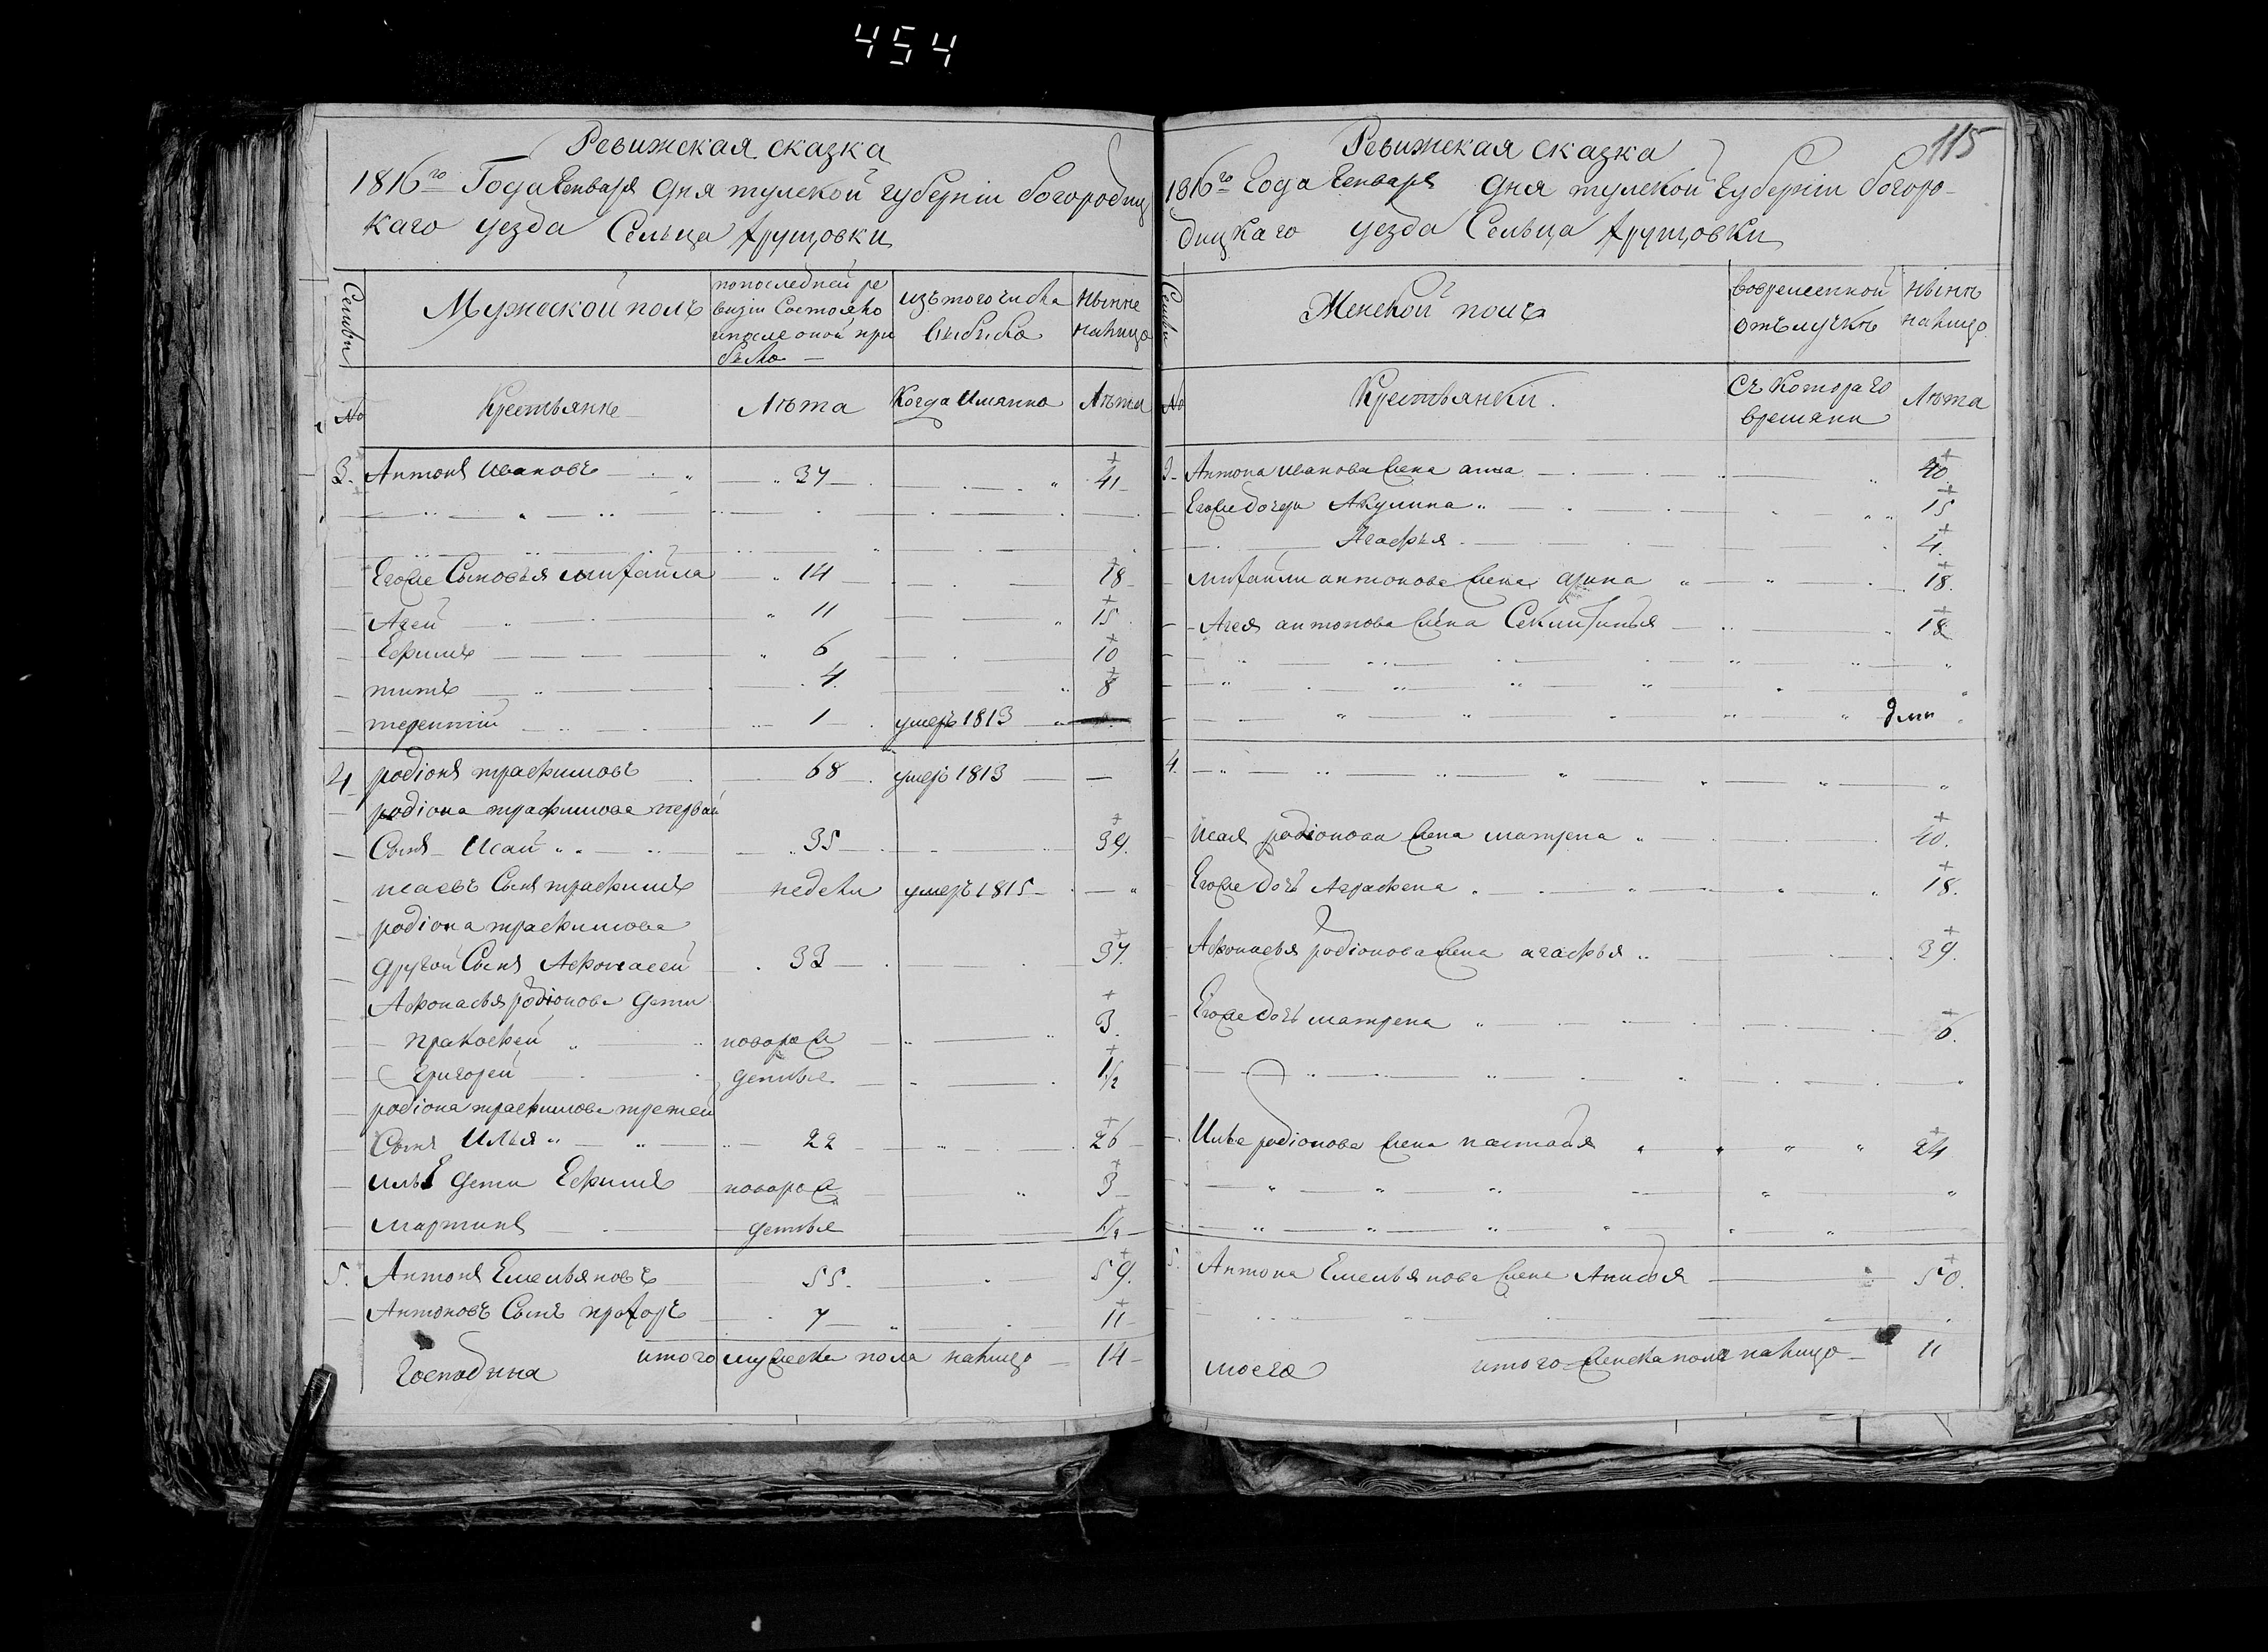 454
Ревижская сказка
1816го Года Генваря дня тулской губерніи богородиц
каго уезда Сельца Хрущовки
Семьи
Мужеской полъ
попоследней ре
визіи Состояло
ипосле оной при
было
изътого числа
выбыло
ныне
налицо
№
Крестьяне
Лѣта
Когда Имянно
Лѣта
3. Антонъ Ивановъ 37 41
Егоже Сыновья михайла 14 18
Агей 11 15
Ефимъ 6 10
титъ 4 8
терентій 1 умеръ 1813
4 родіонъ трафимовъ 68 умеръ 1813
родіона трафимова первай
Сынъ Исай 35 39
исаевъ Сынъ трафимъ недели умеръ 1815
родіона трафимова
другой Сынъ Афонасей 33 37
Афонасья родіонова дети
пракофей новорож 3
григорей денные 1/2
родіона трафимова третей
Сынъ Илья 22 26
ильи дети Ефимъ новорож 3
мартинъ денные 1/2
5. Антонъ Емельяновъ 55 59
Антоновъ Сынъ прохоръ 7 11
итого мужеска пола налицо 14
Господина
115
Ревижская сказка
1816го Года Генваря дня тулской Губерніи богоро-
дицкаго уезда Сельца Хрущовки
Семьи
Женской полъ
вовременной
отълучке
ныне
налицо
№
Крестьянки
Съ Котораго
времяни
Лѣта
3 Антона иванова жена анна 40
Егоже дочери Акулина 15
Агафья 4
михайли антонова жена арина 18
Агея антонова жена Секлитинья 18
4.
исая родіонова жена матрена 40
Егоже дочь Аграфена 18
Афонасья родіонова жена агафья 39
Егоже дочь матрена 6
Ильи родіонова жена настасья 24
5. Антона Емельянова жена Анисья 50
итого женска пола налицо 11
моего